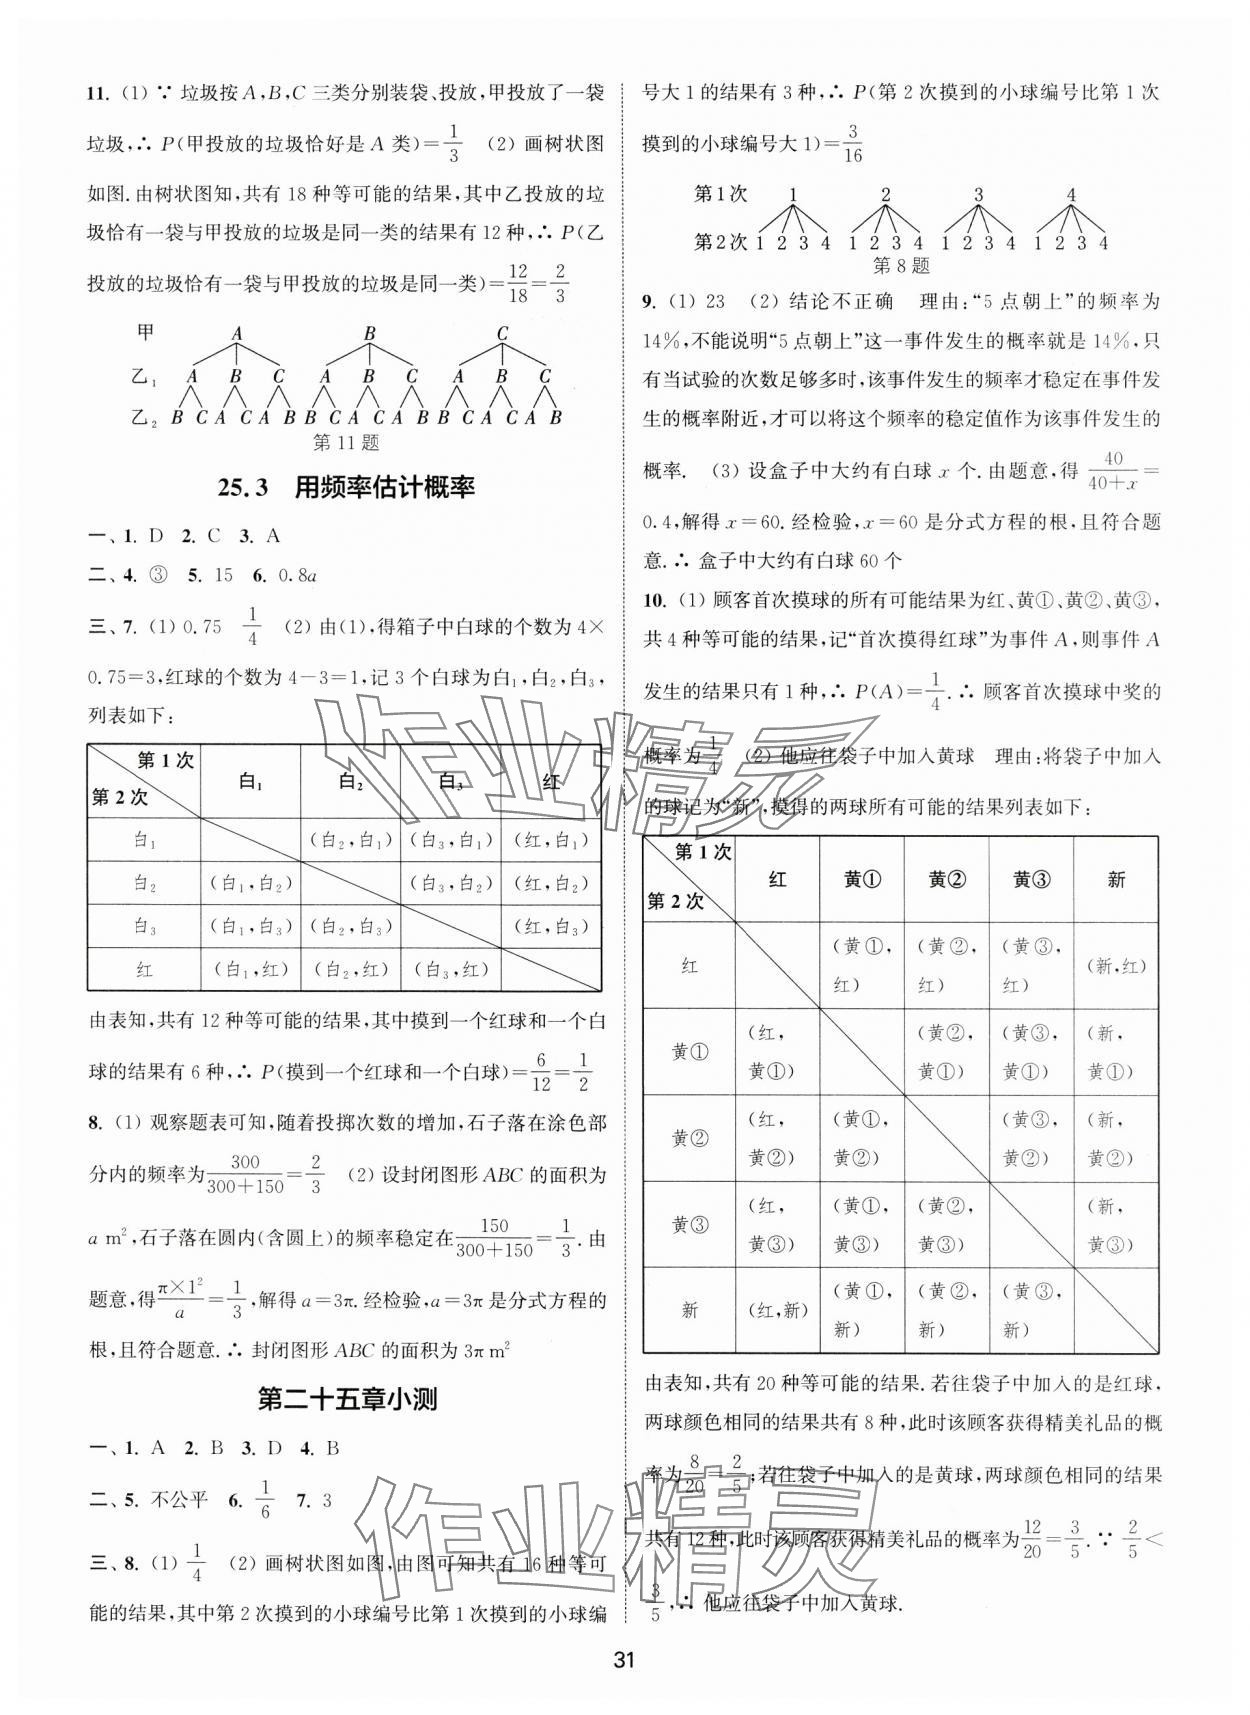 11. (1) ∵ 垃圾按 A,B,C 三类分别装袋、投放,甲投放了一袋
垃圾,∴ P(甲投放的垃圾恰好是 A 类)=1/3 (2) 画树状图
如图. 由树状图知,共有 18 种等可能的结果,其中乙投放的垃
圾恰有一袋与甲投放的垃圾是同一类的结果有 12 种,∴ P(乙
投放的垃圾恰有一袋与甲投放的垃圾是同一类)=12/18=2/3
甲 A B C
乙₁ A B C A B C A B C
乙₂ B C A C A B B C A C A B B C A C A B
第 11 题
25.3 用频率估计概率
一、1. D 2. C 3. A
二、4. ③ 5. 15 6. 0.8a
三、7. (1) 0.75 1/4 (2) 由(1),得箱子中白球的个数为 4×
0.75=3,红球的个数为 4-3=1,记 3 个白球为白₁,白₂,白₃,
列表如下:
第 1 次
第 2 次 白₁ 白₂ 白₃ 红
白₁ (白₂,白₁) (白₃,白₁) (红,白₁)
白₂ (白₁,白₂) (白₃,白₂) (红,白₂)
白₃ (白₁,白₃) (白₂,白₃) (红,白₃)
红 (白₁,红) (白₂,红) (白₃,红)
由表知,共有 12 种等可能的结果,其中摸到一个红球和一个白
球的结果有 6 种,∴ P(摸到一个红球和一个白球)=6/12=1/2
8. (1) 观察题表可知,随着投掷次数的增加,石子落在涂色部
分内的频率为300/(300+150)=2/3 (2) 设封闭图形 ABC 的面积为
a m²,石子落在圆内(含圆上)的频率稳定在150/(300+150)=1/3. 由
题意,得(π×1²)/a=1/3,解得 a=3π. 经检验,a=3π 是分式方程的
根,且符合题意. ∴ 封闭图形 ABC 的面积为 3π m²
第二十五章小测
一、1. A 2. B 3. D 4. B
二、5. 不公平 6. 1/6 7. 3
三、8. (1) 1/4 (2) 画树状图如图,由图可知共有 16 种等可
能的结果,其中第 2 次摸到的小球编号比第 1 次摸到的小球编
号大 1 的结果有 3 种,∴ P(第 2 次摸到的小球编号比第 1 次
摸到的小球编号大 1)=3/16
第 1 次 1 2 3 4
第 2 次 1 2 3 4 1 2 3 4 1 2 3 4 1 2 3 4
第 8 题
9. (1) 23 (2) 结论不正确 理由:“5 点朝上”的频率为
14%,不能说明“5 点朝上”这一事件发生的概率就是 14%,只
有当试验的次数足够多时,该事件发生的频率才稳定在事件发
生的概率附近,才可以将这个频率的稳定值作为该事件发生的
概率. (3) 设盒子中大约有白球 x 个. 由题意,得 40/(40+x)=
0.4,解得 x=60. 经检验,x=60 是分式方程的根,且符合题
意. ∴ 盒子中大约有白球 60 个
10. (1) 顾客首次摸球的所有可能结果为红、黄①、黄②、黄③,
共 4 种等可能的结果,记“首次摸得红球”为事件 A,则事件 A
发生的结果只有 1 种,∴ P(A)=1/4. ∴ 顾客首次摸球中奖的
概率为 1/4 (2) 他应往袋子中加入黄球 理由:将袋子中加入
的球记为“新”,摸得的两球所有可能的结果列表如下:
第 1 次
第 2 次 红 黄① 黄② 黄③ 新
红 (黄①,红) (黄②,红) (黄③,红) (新,红)
黄① (红,黄①) (黄②,黄①) (黄③,黄①) (新,黄①)
黄② (红,黄②) (黄①,黄②) (黄③,黄②) (新,黄②)
黄③ (红,黄③) (黄①,黄③) (黄②,黄③) (新,黄③)
新 (红,新) (黄①,新) (黄②,新) (黄③,新)
由表知,共有 20 种等可能的结果. 若往袋子中加入的是红球,
两球颜色相同的结果共有 8 种,此时该顾客获得精美礼品的概
率为8/20=2/5;若往袋子中加入的是黄球,两球颜色相同的结果
共有 12 种,此时该顾客获得精美礼品的概率为12/20=3/5. ∵ 2/5<
3/5,∴ 他应往袋子中加入黄球.
31
作业精灵
作业精灵